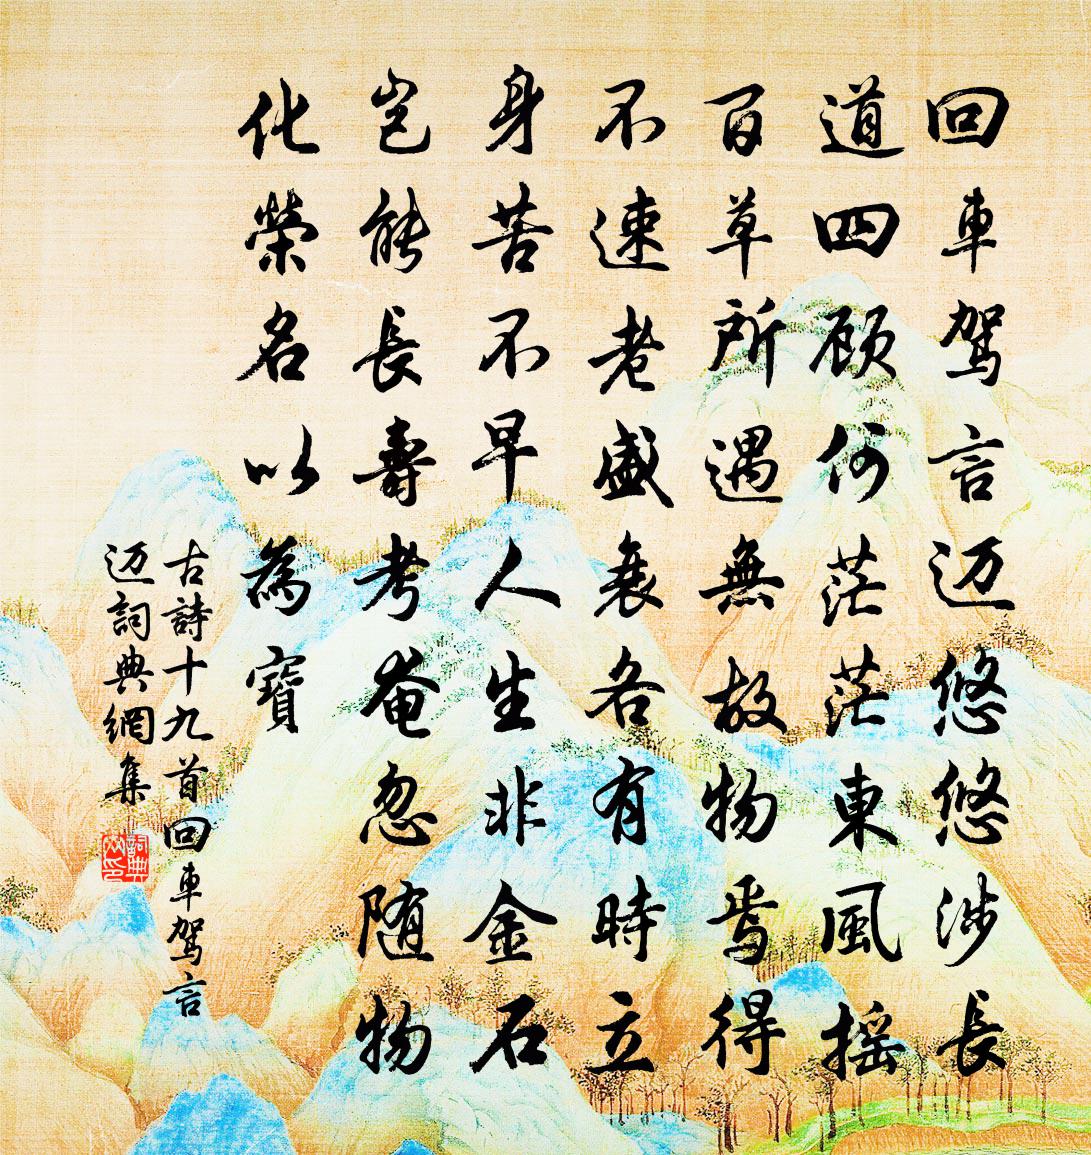 回車駕言迈悠悠涉長
道四顾何茫茫東風摇
百草所遇無故物焉得
不速老盛衰各有時立
身苦不早人生非金石
岂能長壽考奄忽随物
化榮名以為寶
古詩十九首回車駕言
迈詞典網集
詞典网印